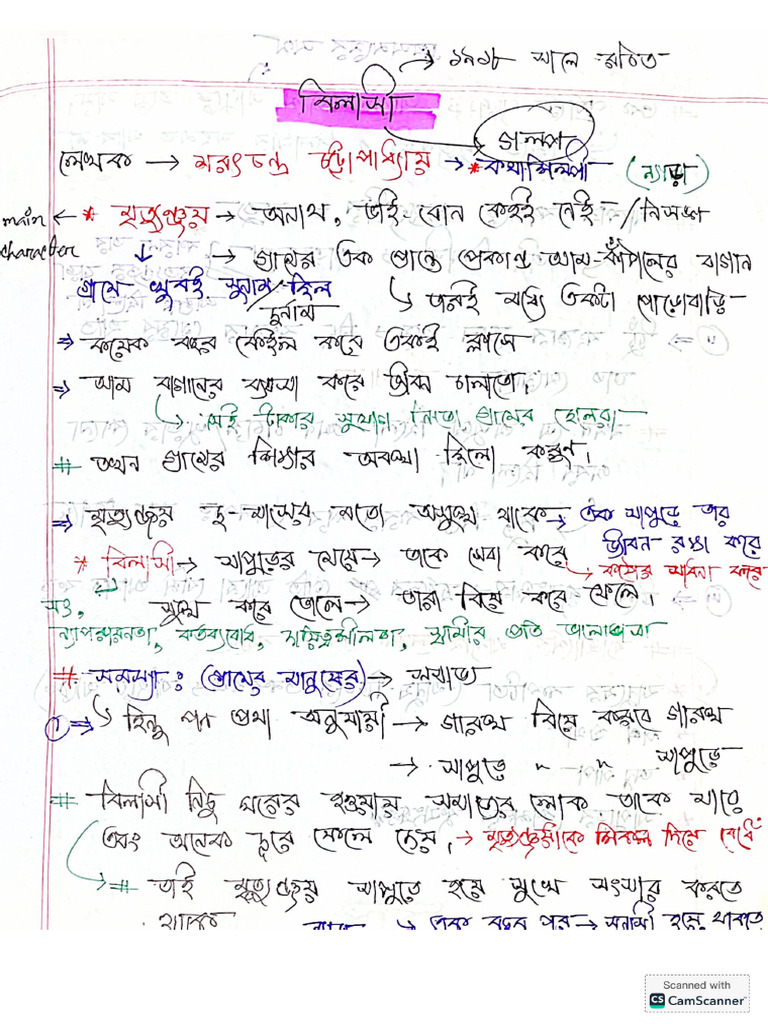 → ১৯১৮ সালে রচিত
বিলাসী
গল্প
লেখক → শরৎচন্দ্র চট্টোপাধ্যায় → * কথাশিল্পী (ন্যাড়া)
main character ← * মৃত্যুঞ্জয় → অনাথ, ভাই বোন কেহই নেই /নিসঙ্গ
→ গ্রামের এক প্রান্তে প্রকান্ড আম-কাঁঠালের বাগান
গ্রামে খুবই সুনাম ছিল
দুর্নাম
তারই মধ্যে একটা পোড়োবাড়ি
⇒ কয়েক বছর ফেইল করে একই ক্লাসে
⇒ আম বাগানের ব্যবসা করে জীবন চালাতো।
→ সেই টাকার সুযোগ নিতো গ্রামের ছেলেরা
# তখন গ্রামের শিক্ষার অবস্থা ছিলো করুণ।
⇒ মৃত্যুঞ্জয় দু-মাসের মতো অসুস্থ থাকে → এক সাপুড়ে তার জীবন রক্ষা করে
* বিলাসী → সাপুড়ের মেয়ে → তাকে সেবা করে
→ কঠোর সাধনা করে
সুস্থ করে তোলে → তারা বিয়ে করে ফেলে।
সৎ,
ন্যায়পরায়নতা, কর্তব্যবোধ, দায়িত্বশীলতা, স্বামীর প্রতি ভালোবাসা
# সমস্যা: (গ্রামের মানুষের) →
① ⇒ হিন্দু পন প্রথা অনুযায়ী → গারস্থ বিয়ে করবে গারস্থ
→ সাপুড়ে " " সাপুড়ে
# বিলাসী নিচু ঘরের হওয়ায় সমাজের লোক তাকে মারে
এবং অনেক দূরে ফেলে দেয়, → মৃত্যুঞ্জয়কে শিকল দিয়ে বেঁধে
→ # তাই মৃত্যুঞ্জয় সাপুড়ে হয়ে সুখে সংসার করতে
থাকে
→ এক বছর পর → সন্ন্যাসী হয়ে থাকতে
Scanned with
CS CamScanner